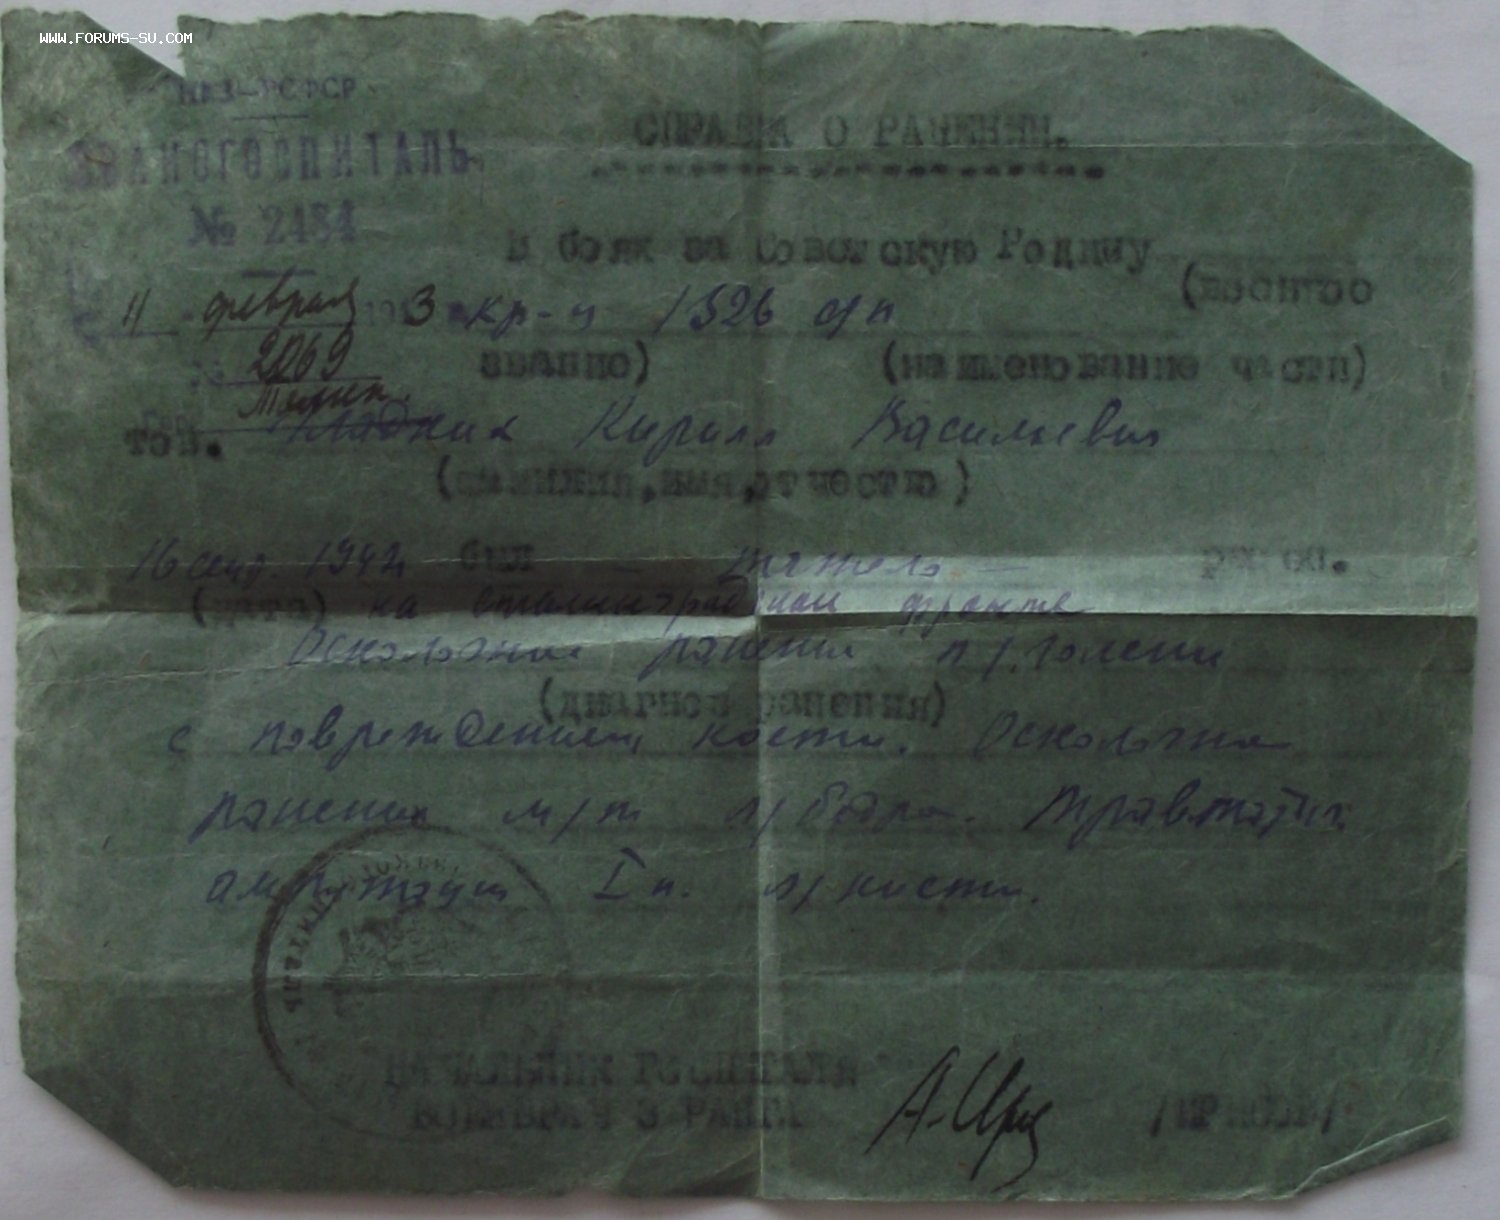 WWW.FORUMS-SU.COM
НКЗ-РСФСР
ЭВАКОГОСПИТАЛЬ
СПРАВКА О РАНЕНИИ.
В боях за Советскую Родину
(воинское
11 февраля 1943 кр-ц 1326 сп
№ 2069
звание) (наименование части)
тов. Кирилл Васильевич
(фамилия, имя, отчество)
16 сент. 1942 был - тяжело - ранен.
(дата) на сталинградском фронте
Осколочное ранение п/голени
(диагноз ранения)
с повреждением кости. Осколочное
ранение м/т л/бедра. Травматич.
ампутация I п. л/кисти.
НАЧАЛЬНИК ГОСПИТАЛЯ
ВОЕНВРАЧ 3 РАНГА